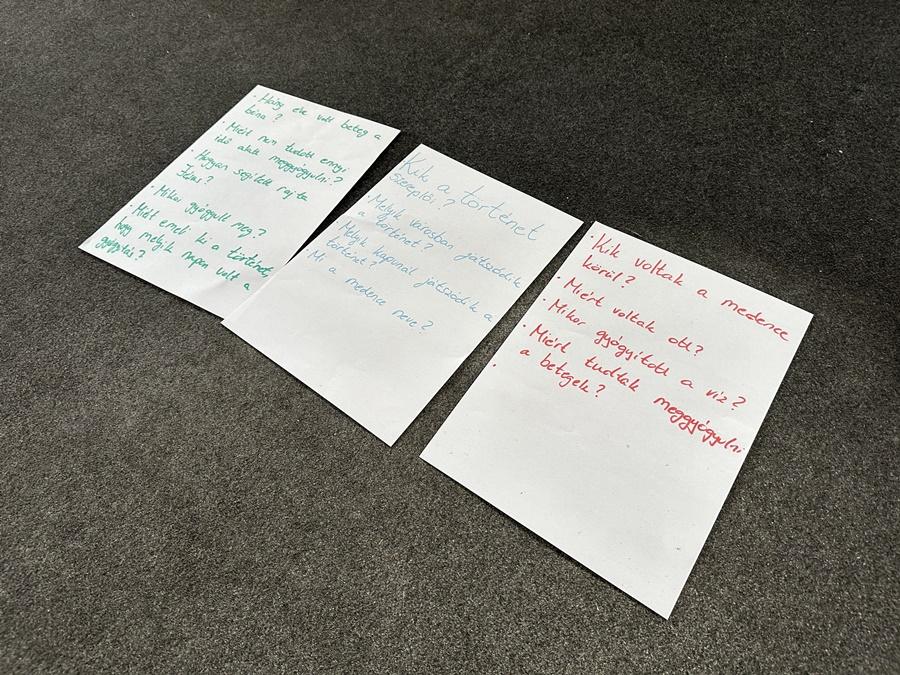 · Hány éve volt beteg a
béna?
· Miért nem tudott ennyi
idő alatt meggyógyulni?
· Hogyan segített rajta
Jézus?
· Mikor gyógyult meg?
· Miért emeli ki a történet
hogy melyik napon volt a
gyógyítás?
Kik a történet
szereplői?
· Melyik városban játszódik
a történet?
Melyik kapunál játszódik a
történet?
Mi a medence neve?
· Kik voltak a medence
körül?
· Miért voltak ott?
· Mikor gyógyított a víz?
· Miért tudtak meggyógyulni
a betegek?
·